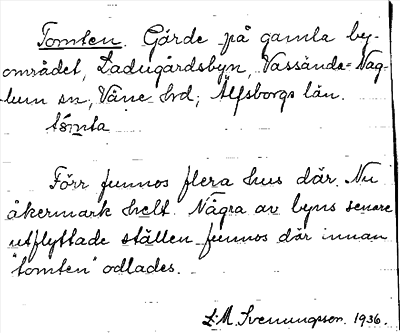 Tomten. Gärde på gamla by-
området, Ladugårdsbyn, Vassända-Nag-
lum sn, Väne-hrd, Älfsborgs län.
tòmta
Förr funnos flera hus där. Nu
åkermark helt. Några av byns senare
utflyttade ställen funnos där innan
"tomten" odlades.
L.M. Svenungsson. 1936.